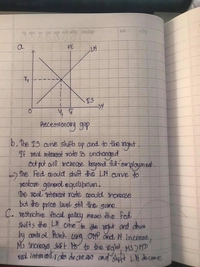 a.
FE
LM
r₁
IS
0
Y₁ Ȳ
Y
Recessionary gap
b. The IS curve shifts up and to the right.
If real interest rate is unchanged
output will increase beyond full-employment.
→ The Fed would shift the LM curve to
restore general equilibrium.
The real interest rate would increase
but the price level still the same.
C. restrictive fiscal policy means the Fed
shifts the LM curve to the right and down
by control Bank using OMP and M increases,
Ms increases shift Ms to the right, Ms > MD
real interest rate decreases and shift LM